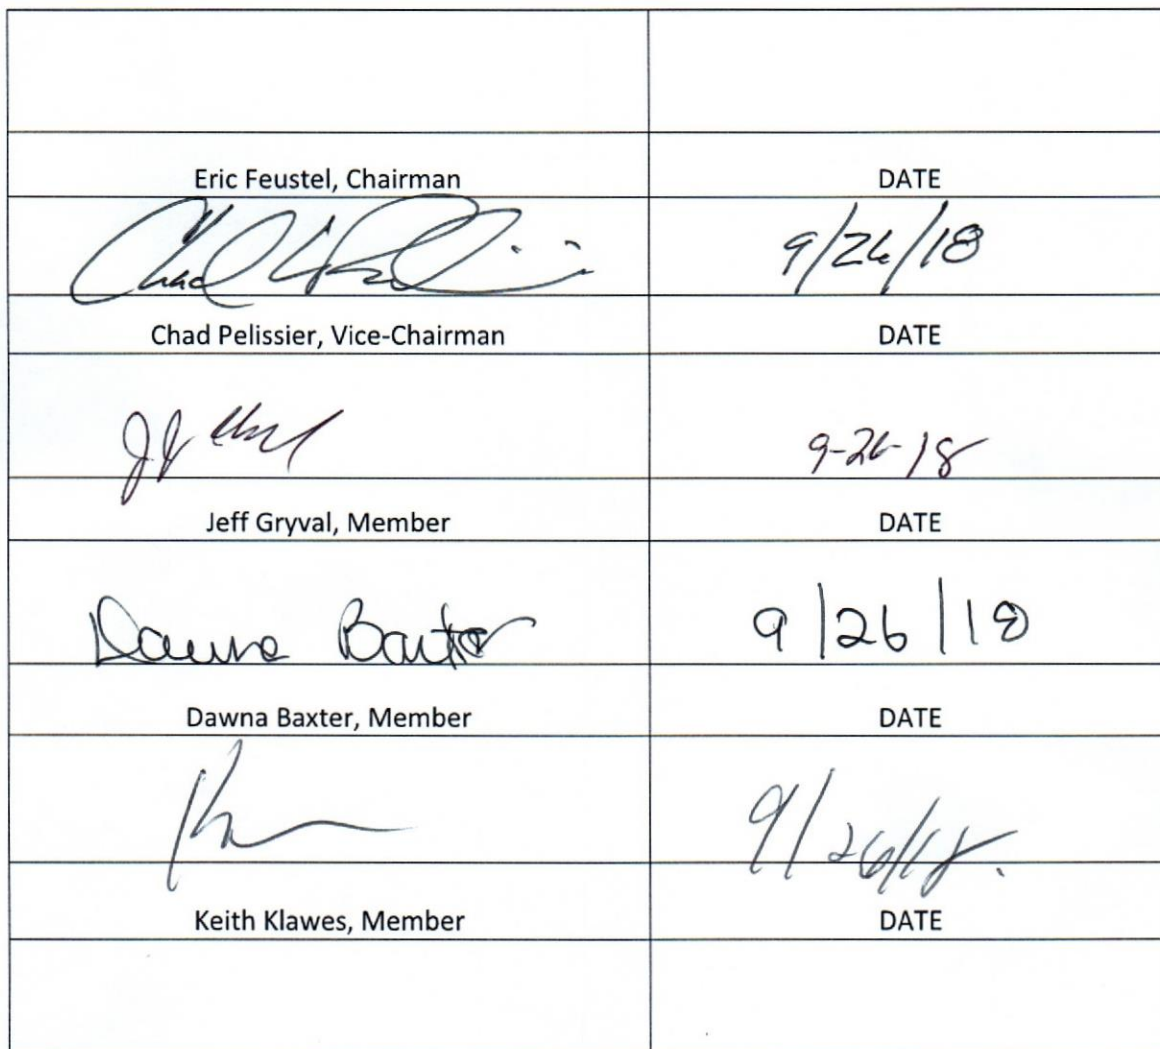 Eric Feustel, Chairman DATE
9/26/18
Chad Pelissier, Vice-Chairman DATE
9-26-18
Jeff Gryval, Member DATE
Dawna Baxter 9/26/18
Dawna Baxter, Member DATE
9/26/18.
Keith Klawes, Member DATE